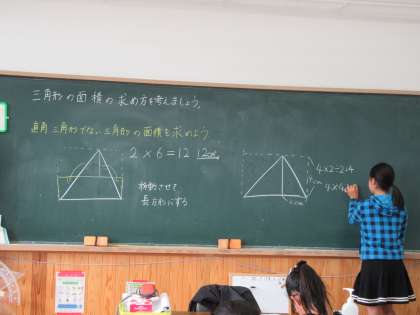 三角形の面積の求め方を考えましょう。
直角三角形でない三角形の面積を求めよう
2×6=12 12cm²
移動させて
長方形にする
4×2÷2=4
4×4